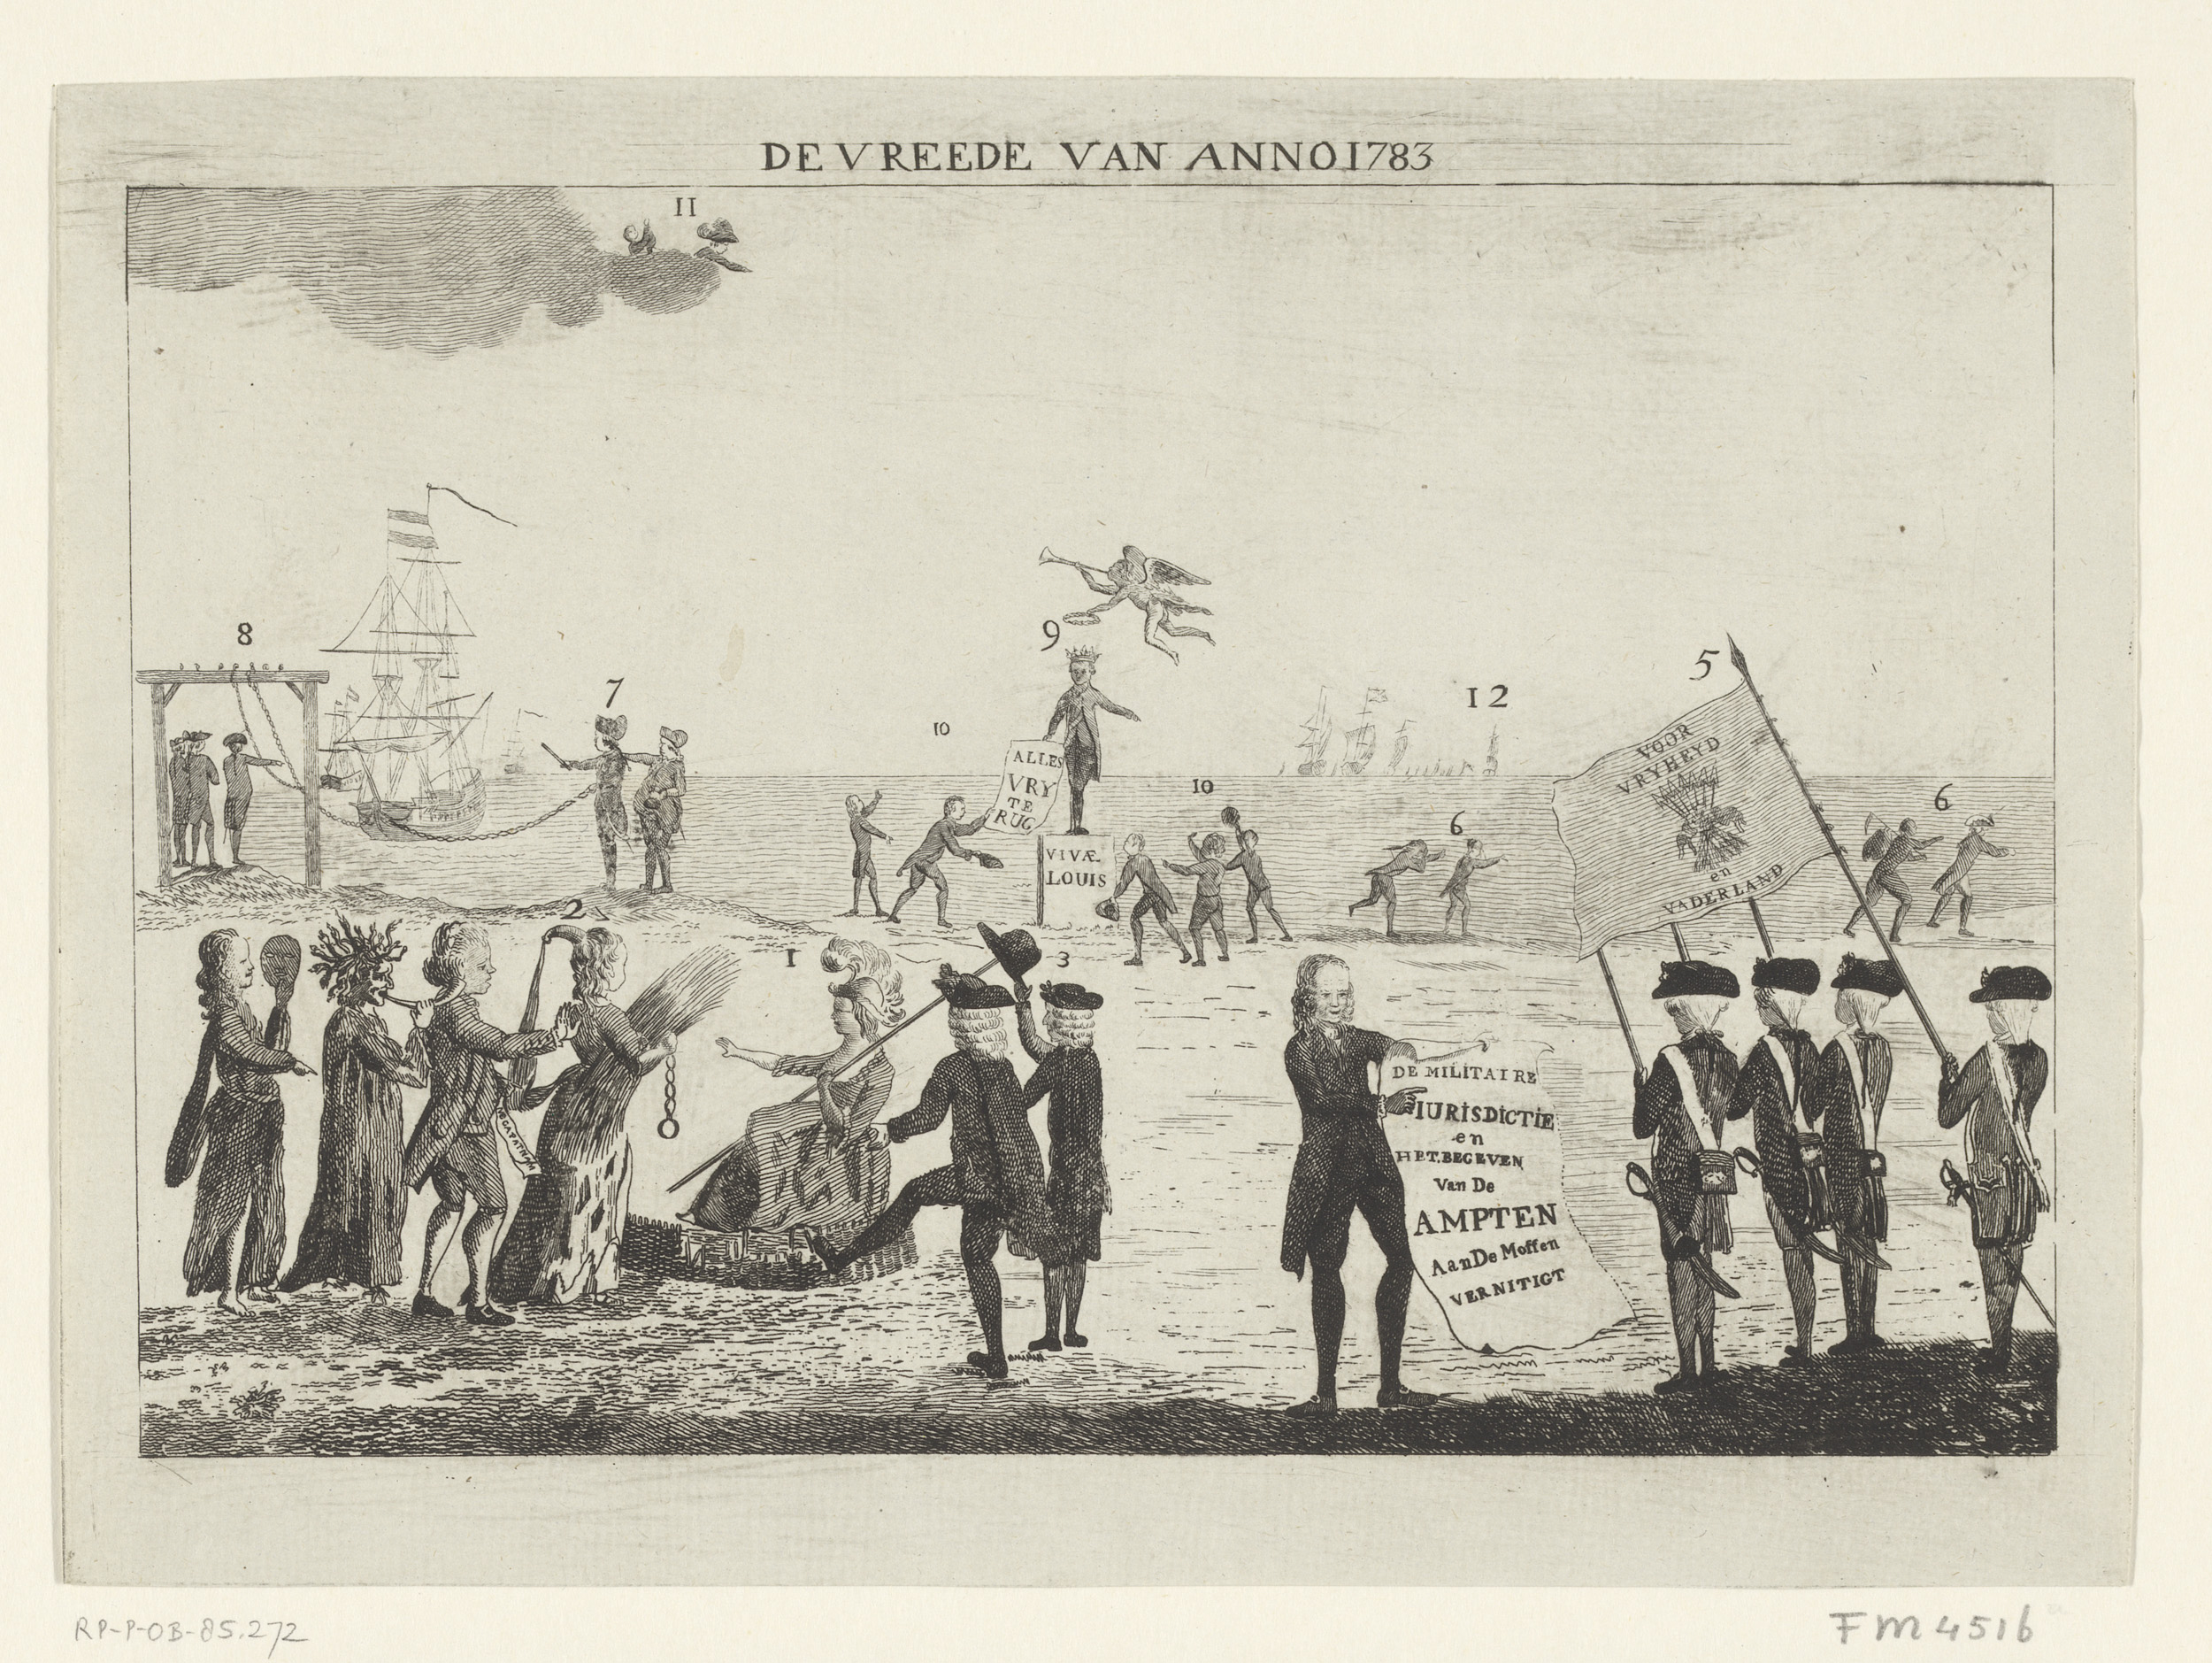 DE VREEDE VAN ANNO 1783
11
8
7
9
10
12
5
10
6
6
ALLES
VRY
TE
RUG
VIVÆ
LOUIS
VOOR
VRYHEYD
en
VADERLAND
2
1
3
DE MILITAIRE
IURISDICTIE
en
HET.BEGEVEN
Van De
AMPTEN
Aan De Moffen
VERNITIGT
RP-P-OB-85.272
FM 4516